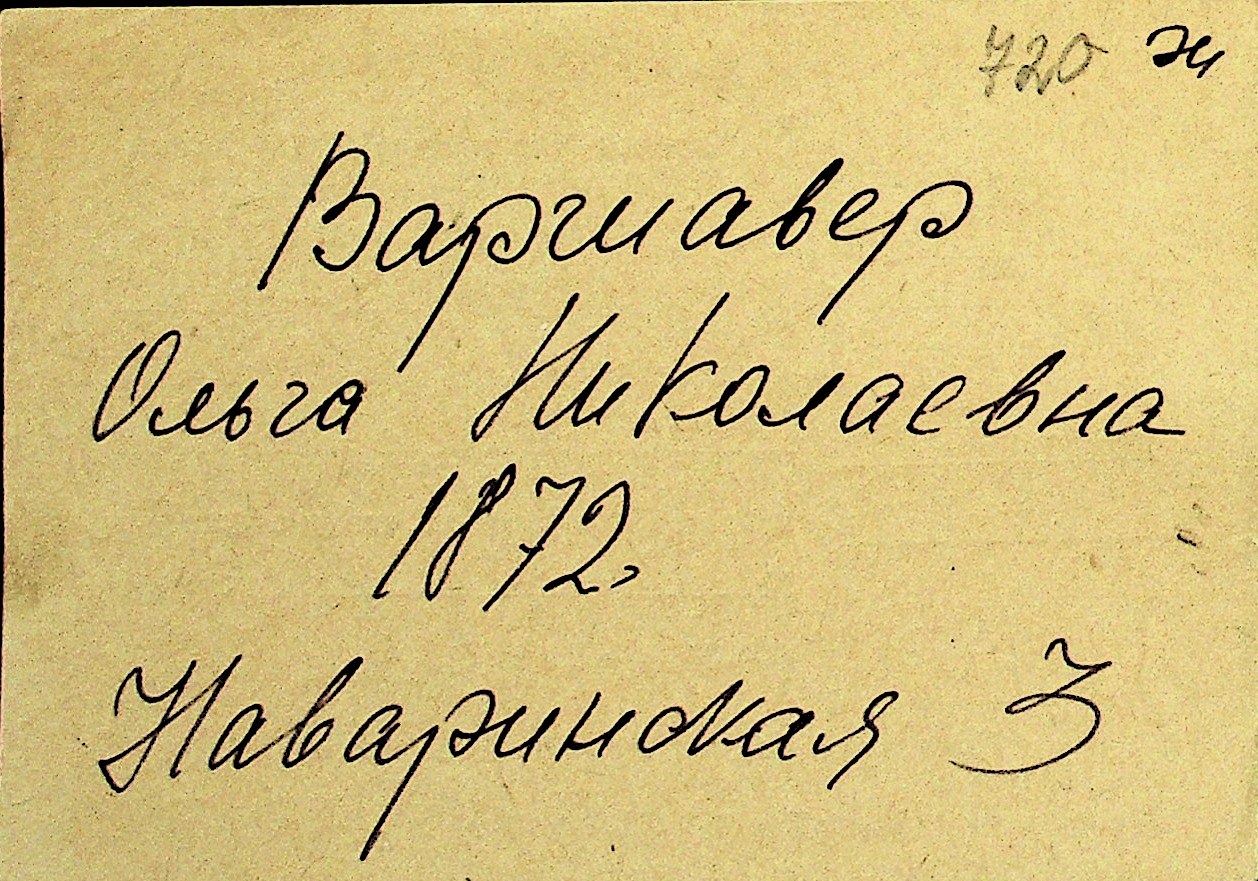 720 ж
Варшавер
Ольга Николаевна
1872.
Наваринская 3